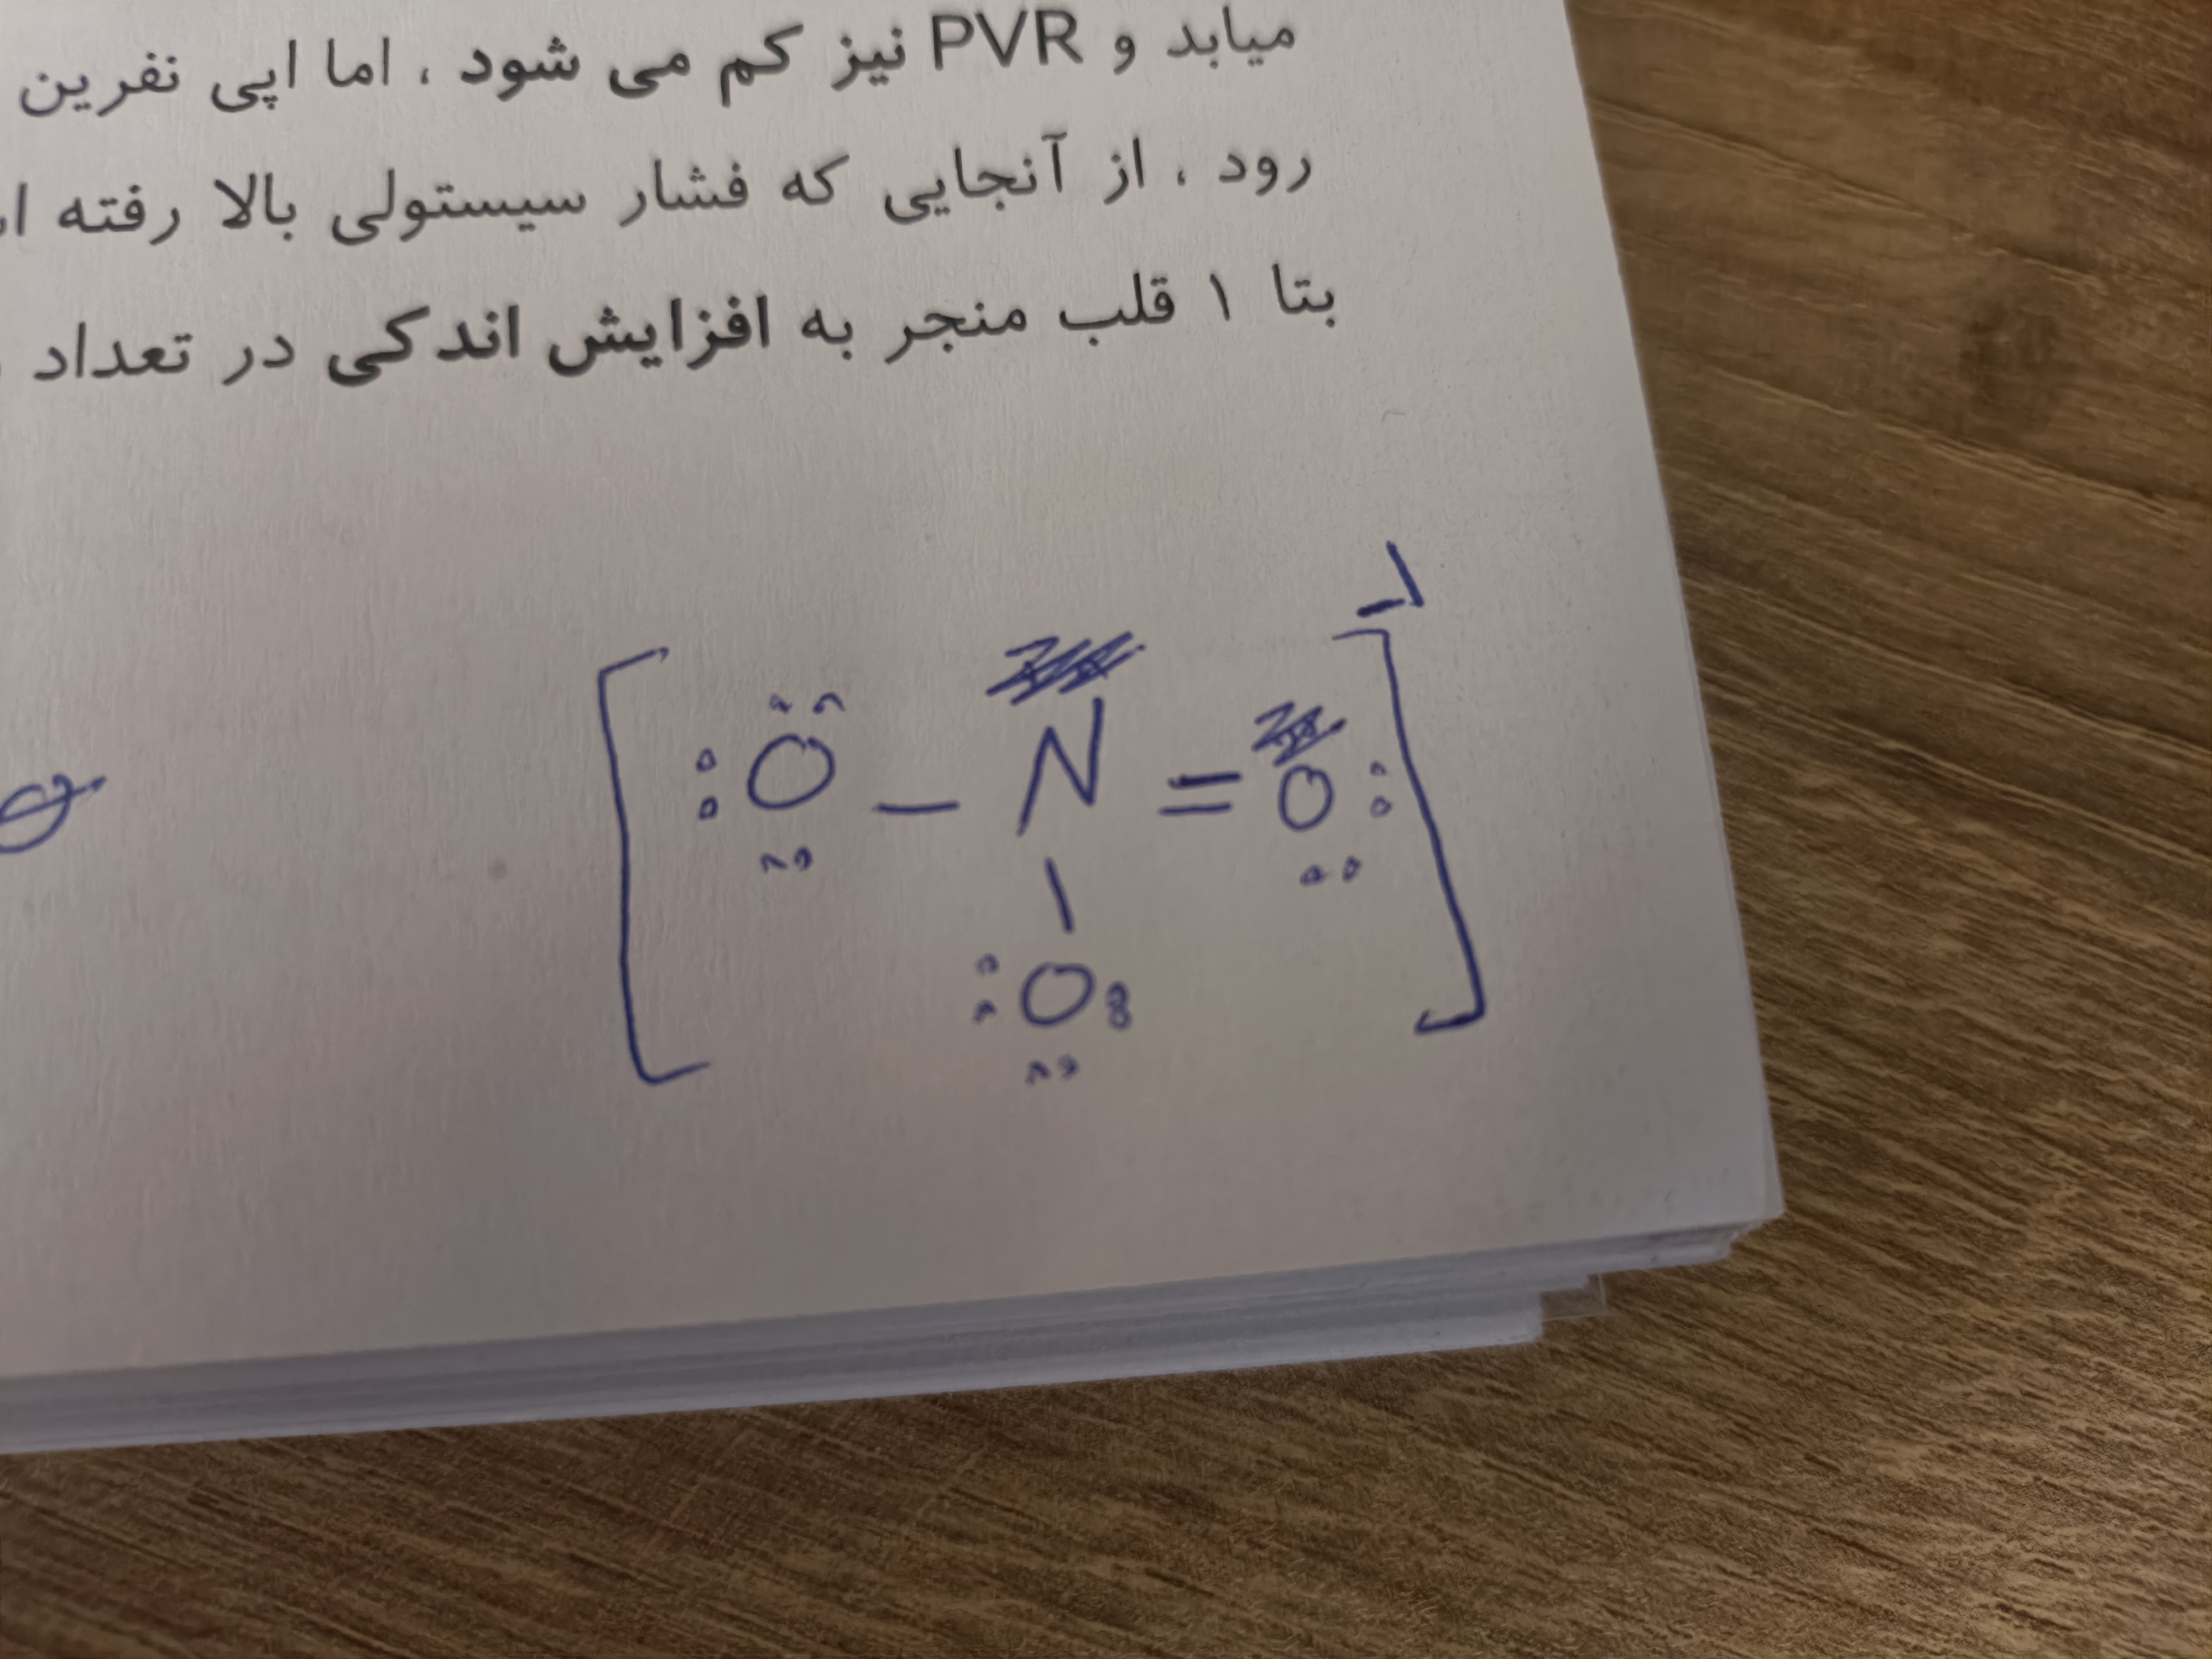 میابد و PVR نیز کم می شود ، اما اپی نفرین
رود ، از آنجایی که فشار سیستولی بالا رفته
بتا ۱ قلب منجر به افزایش اندکی در تعداد
-1
O - N = O
|
O